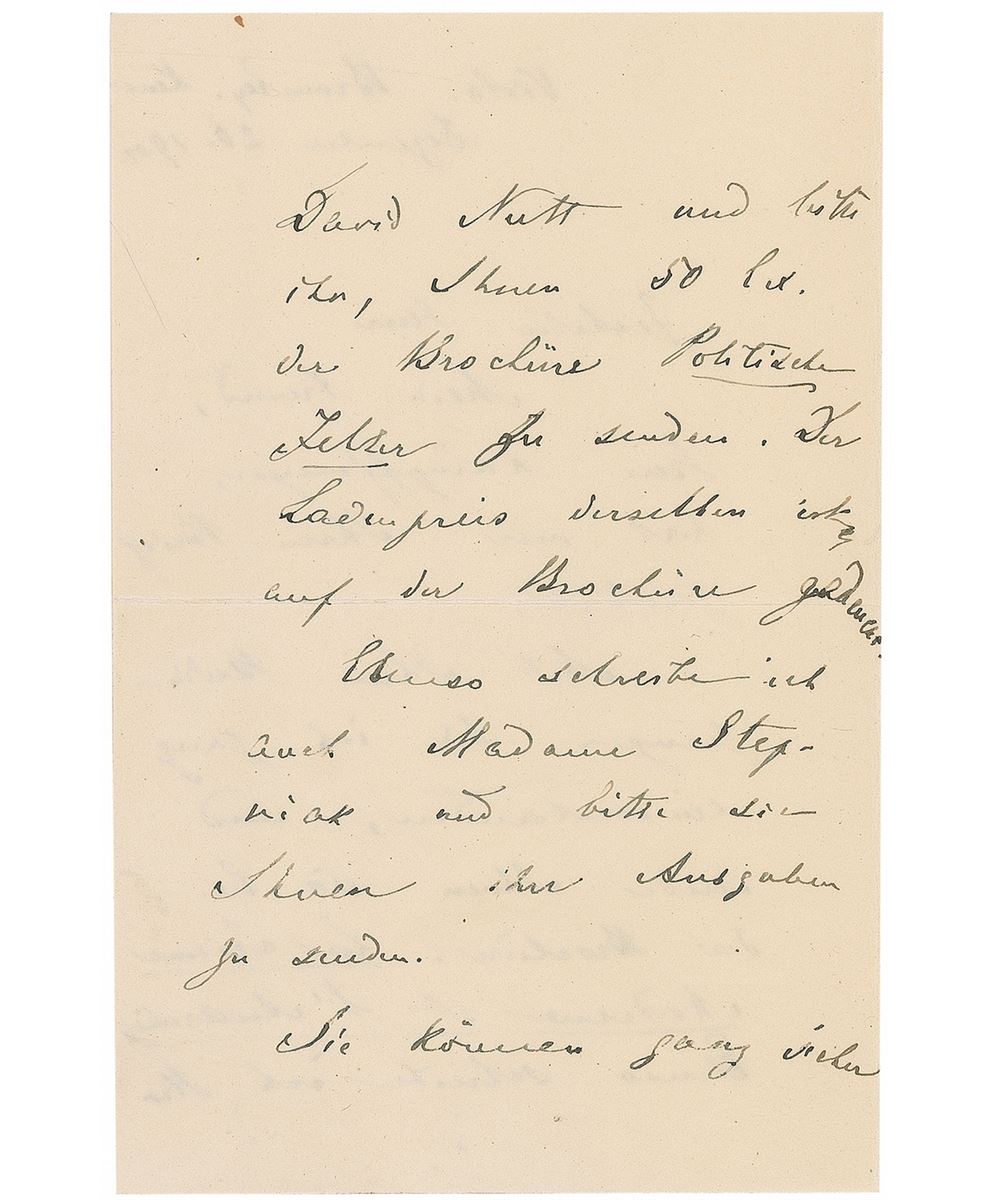 David Nutt und bitte
ihn, Ihnen 50 Ex.
der Brochüre Politische
zu senden. Der
Ladenpreis derselben ist
auf der Brochüre gedruckt.
Ebenso schreibe ich
auch Madame Step-
niak und bitte sie
Ihnen ihre Ausgaben
zu senden.
Sie können ganz sicher